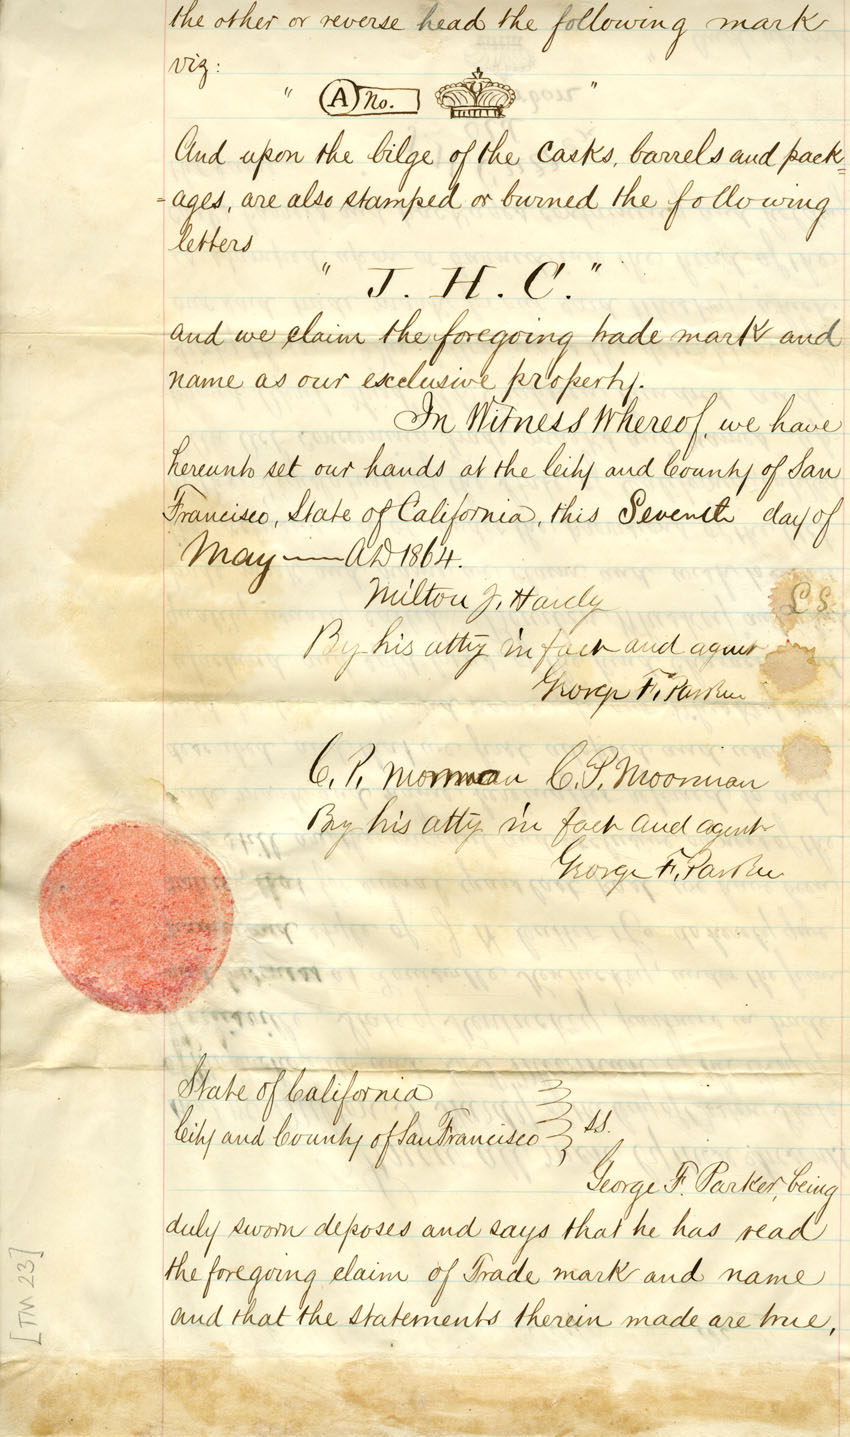 the other or reverse head the following mark
viz:
" A No. "
And upon the bilge of the casks, barrels and pack=
=ages, are also stamped or burned the following
letters
" J. H. C. "
and we claim the foregoing trade mark and
name as our exclusive property.
In Witness Whereof, we have
hereunto set our hands at the City and County of San
Francisco, State of California, this Seventh day of
May — AD 1864.
Milton J. Hardy L S
By his atty in fact and agent
George F. Parker
C. P. Moorman C. P. Moorman
By his atty in fact and agent
George F. Parker
State of California
City and County of San Francisco ss.
George F. Parker, being
duly sworn deposes and says that he has read
the foregoing claim of Trade mark and name
and that the statements therein made are true,
[TM 23]